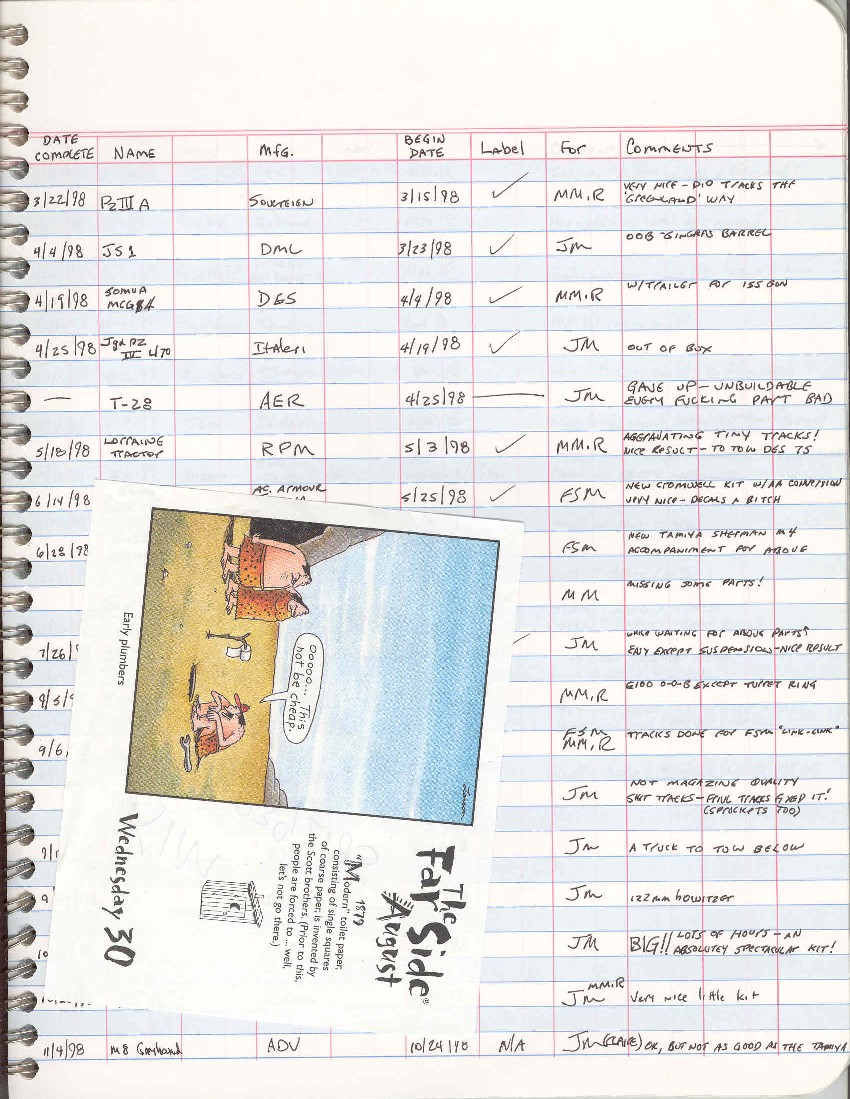 DATE COMPLETE NAME MFG. BEGIN DATE Label For Comments
3/22/98 PzIII A 3/15/98 MM,R VERY NICE - DID TRACKS THE
"GREENLAND" WAY
4/4/98 JS1 DML 3/23/98 JM OOB - GINGRAS BARREL
4/19/98 SOMUA DES 4/4/98 MM,R W/TRAILER FOR 155 GUN
4/25/98 Jgd PZ IV L/70 Italeri 4/19/98 JM OUT OF BOX
— T-28 AER 4/25/98 JM GAVE UP - UNBUILDABLE
EVERY FUCKING PART BAD
5/18/98 LORRAINE TRACTOR RPM 5/3/98 MM,R AGGRAVATING TINY TRACKS!
NICE RESULT - TO TOW DES 75
6/14/98 AC. ARMOUR 5/25/98 FSM NEW CROMWELL KIT W/AA CONVERSION
VERY NICE - DECALS A BITCH
6/28/98 FSM NEW TAMIYA SHERMAN M4
ACCOMPANIMENT FOR ABOVE
MM MISSING SOME PARTS!
7/26/ JM WAITING FOR ABOVE PARTS
EASY EXCEPT SUSPENSION - NICE RESULT
MM,R E100 O-O-B EXCEPT TURRET RING
9/6, FSM MM,R TRACKS DONE FOR FSM "LINK-LINK"
JM NOT MAGAZINE QUALITY
SHIT TRACKS - FRIUL TRACKS FIXED IT!
(SPROCKETS TOO)
JM A TRUCK TO TOW BELOW
JM 122mm howitzer
JM BIG!! LOTS OF HOURS - AN
ABSOLUTEY SPECTACULAR KIT!
MM,R
JM Very nice little kit
11/4/98 M8 Greyhound ADV 10/24/98 N/A JM (CLAIRE) OK, BUT NOT AS GOOD AS THE TAMIYA
Ooooo... This
not be cheap.
Early plumbers
Larson
The
Far Side®
August
1879
"Modern" toilet paper,
consisting of single squares
of coarse paper, is invented by
the Scott brothers. (Prior to this,
people are forced to ... well,
let's not go there.)
Wednesday 30